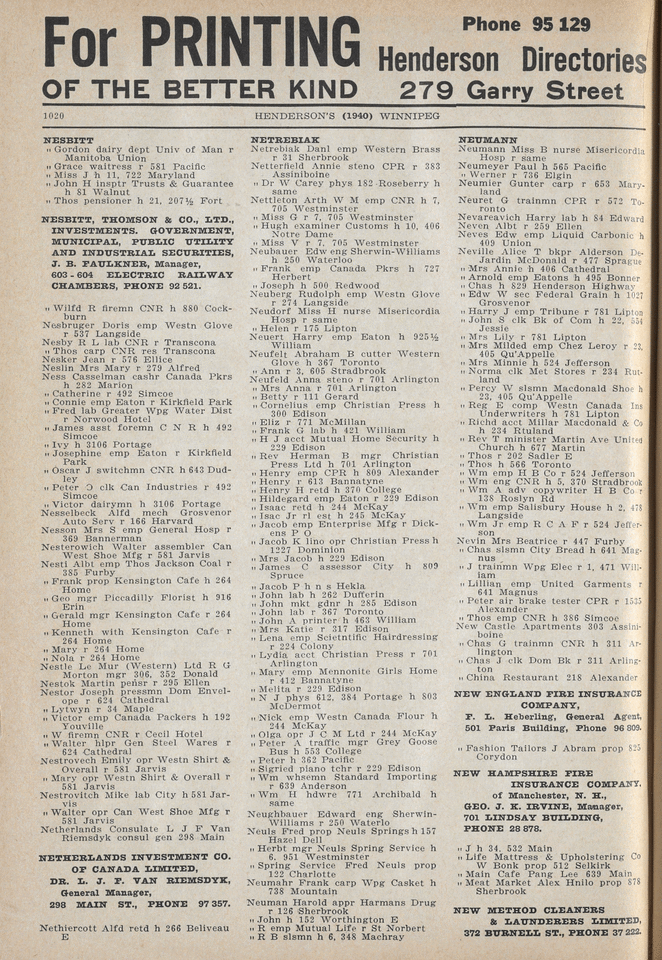 For PRINTING
OF THE BETTER KIND
Phone 95 129
Henderson Directories
279 Garry Street
1020
HENDERSON'S (1940) WINNIPEG
NESBITT
" Gordon dairy dept Univ of Man r
Manitoba Union
" Grace waitress r 581 Pacific
" Miss J h 11, 722 Maryland
" John H insptr Trusts & Guarantee
h 81 Walnut
" Thos pensioner h 21, 207½ Fort
NESBITT, THOMSON & CO., LTD.,
INVESTMENTS. GOVERNMENT,
MUNICIPAL, PUBLIC UTILITY
AND INDUSTRIAL SECURITIES,
J. B. FAULKNER, Manager,
603-604 ELECTRIC RAILWAY
CHAMBERS, PHONE 92 521.
" Wilfd R firemn CNR h 880 Cock-
burn
Nesbruger Doris emp Westn Glove
r 537 Langside
Nesby R L lab CNR r Transcona
" Thos carp CNR res Transcona
Nesker Jean r 576 Ellice
Neslin Mrs Mary r 279 Alfred
Ness Casselman cashr Canada Pkrs
h 282 Marion
" Catherine r 492 Simcoe
" Connie emp Eaton r Kirkfield Park
" Fred lab Greater Wpg Water Dist
r Norwood Hotel
" James asst foremn C N R h 492
Simcoe
" Ivy h 3106 Portage
" Josephine emp Eaton r Kirkfield
Park
" Oscar J switchmn CNR h 643 Dud-
ley
" Peter O clk Can Industries r 492
Simcoe
" Victor dairymn h 3106 Portage
Nesselbeck Alfd mech Grosvenor
Auto Serv r 166 Harvard
Nesson Mrs S emp General Hosp r
369 Bannerman
Nesterowich Walter assembler Can
West Shoe Mfg r 581 Jarvis
Nesti Albt emp Thos Jackson Coal r
385 Furby
" Frank prop Kensington Cafe h 264
Home
" Geo mgr Piccadilly Florist h 916
Erin
" Gerald mgr Kensington Cafe r 264
Home
" Kenneth with Kensington Cafe r
264 Home
" Mary r 264 Home
" Nola r 264 Home
Nestle Le Mur (Western) Ltd R G
Morton mgr 306, 352 Donald
Nestok Martin pensr r 295 Ellen
Nestor Joseph pressmn Dom Envel-
ope r 624 Cathedral
" Lytwyn r 34 Maple
" Victor emp Canada Packers h 192
Youville
" W firemn CNR r Cecil Hotel
" Walter hlpr Gen Steel Wares r
624 Cathedral
Nestrovech Emily opr Westn Shirt &
Overall r 581 Jarvis
" Mary opr Westn Shirt & Overall r
581 Jarvis
Nestrovitch Mike lab City h 581 Jar-
vis
" Walter opr Can West Shoe Mfg r
581 Jarvis
Netherlands Consulate L J F Van
Riemsdyk consul gen 298 Main
NETHERLANDS INVESTMENT CO.
OF CANADA LIMITED,
DR. L. J. F. VAN RIEMSDYK,
General Manager,
298 MAIN ST., PHONE 97 357.
Nethiercott Alfd retd h 266 Beliveau
E
NETREBIAK
Netrebiak Danl emp Western Brass
r 31 Sherbrook
Netterfield Annie steno CPR r 383
Assiniboine
" Dr W Carey phys 182 Roseberry h
same
Nettleton Arth W M emp CNR h 7,
705 Westminster
" Miss G r 7, 705 Westminster
" Hugh examiner Customs h 10, 406
Notre Dame
" Miss V r 7, 705 Westminster
Neubauer Edw eng Sherwin-Williams
h 250 Waterloo
" Frank emp Canada Pkrs h 727
Herbert
" Joseph h 500 Redwood
Neuberg Rudolph emp Westn Glove
r 274 Langside
Neudorf Miss H nurse Misericordia
Hosp r same
" Helen r 175 Lipton
Neuert Harry emp Eaton h 925½
William
Neufelj Abraham B cutter Western
Glove h 367 Toronto
" Ann r 3, 605 Stradbrook
Neufeld Anna steno r 701 Arlington
" Mrs Anna r 701 Arlington
" Betty r 111 Gerard
" Cornelius emp Christian Press h
300 Edison
" Eliz r 771 McMillan
" Frank G lab h 421 William
" H J acct Mutual Home Security h
229 Edison
" Rev Herman B mgr Christian
Press Ltd h 701 Arlington
" Henry emp CPR h 809 Alexander
" Henry r 613 Bannatyne
" Henry H retd h 370 College
" Hildegard emp Eaton r 229 Edison
" Isaac retd h 244 McKay
" Isaac Jr rl est h 245 McKay
" Jacob emp Enterprise Mfg r Dick-
ens P O
" Jacob K lino opr Christian Press h
1227 Dominion
" Mrs Jacob h 229 Edison
" James C assessor City h 809
Spruce
" Jacob P h n s Hekla
" John lab h 262 Dufferin
" John mkt gdnr h 285 Edison
" John lab r 367 Toronto
" John A printer h 463 William
" Mrs Katie r 317 Edison
" Lena emp Scientific Hairdressing
r 224 Colony
" Lydia acct Christian Press r 701
Arlington
" Mary emp Mennonite Girls Home
r 412 Bannatyne
" Melita r 229 Edison
" N J phys 612, 384 Portage h 803
McDermot
" Nick emp Westn Canada Flour h
244 McKay
" Olga opr J C M Ltd r 244 McKay
" Peter A traffic mgr Grey Goose
Bus h 553 College
" Peter h 362 Pacific
" Sigried piano tchr r 229 Edison
" Wm whsemn Standard Importing
r 639 Anderson
" Wm H hdwre 771 Archibald h
same
Neughbauer Edward eng Sherwin-
Williams r 250 Waterlo
Neuls Fred prop Neuls Springs h 157
Hazel Dell
" Herbt mgr Neuls Spring Service h
6, 951 Westminster
" Spring Service Fred Neuls prop
122 Charlotte
Neumahr Frank carp Wpg Casket h
738 Mountain
Neuman Harold appr Harmans Drug
r 126 Sherbrook
" John h 152 Worthington E
" R emp Mutual Life r St Norbert
" R B slsmn h 6, 348 Machray
NEUMANN
Neumann Miss B nurse Misericordia
Hosp r same
Neumeyer Paul h 565 Pacific
" Werner r 736 Elgin
Neumier Gunter carp r 653 Mary-
land
Neuret G trainmn CPR r 572 To-
ronto
Nevareavich Harry lab h 84 Edward
Neven Albt r 259 Ellen
Neves Edw emp Liquid Carbonic h
409 Union
Neville Alice T bkpr Alderson De-
Jardin McDonald r 477 Sprague
" Mrs Annie h 406 Cathedral
" Arnold emp Eatons h 495 Bonner
" Chas h 829 Henderson Highway
" Edw W sec Federal Grain h 1027
Grosvenor
" Harry J emp Tribune r 781 Lipton
" John S clk Bk of Com h 22, 534
Jessie
" Mrs Lily r 781 Lipton
" Mrs Milded emp Chez Leroy r 23,
405 Qu'Appelle
" Mrs Minnie h 524 Jefferson
" Norma clk Met Stores r 234 Rut-
land
" Percy W slsmn Macdonald Shoe h
23, 405 Qu'Appelle
" Reg E comp Westn Canada Ins
Underwriters h 781 Lipton
" Richd acct Millar Macdonald & Co
h 234 Rtuland
" Rev T minister Martin Ave United
Church h 677 Martin
" Thos r 202 Sadler E
" Thos h 566 Toronto
" Wm emp H B Co r 524 Jefferson
" Wm eng CNR h 5, 370 Stradbrook
" Wm A adv copywriter H B Co r
138 Roslyn Rd
" Wm emp Salisbury House h 2, 478
Langside
" Wm Jr emp R C A F r 524 Jeffer-
son
Nevin Mrs Beatrice r 447 Furby
" Chas slsmn City Bread h 641 Mag-
nus
" J trainmn Wpg Elec r 1, 471 Will-
iam
" Lillian emp United Garments r
641 Magnus
" Peter air brake tester CPR r 1535
Alexander
" Thos emp CNR h 386 Simcoe
New Castle Apartments 303 Assini-
boine
" Chas G trainmn CNR h 311 Ar-
lington
" Chas J clk Dom Bk r 311 Arling-
ton
" China Restaurant 218 Alexander
NEW ENGLAND FIRE INSURANCE
COMPANY,
F. L. Heberling, General Agent,
501 Paris Building, Phone 96 809.
" Fashion Tailors J Abram prop 825
Corydon
NEW HAMPSHIRE FIRE
INSURANCE COMPANY,
of Manchester, N. H.,
GEO. J. K. IRVINE, Manager,
701 LINDSAY BUILDING,
PHONE 28 878.
" J h 34, 532 Main
" Life Mattress & Upholstering Co
W Bonk prop 512 Selkirk
" Main Cafe Pang Lee 639 Main
" Meat Market Alex Hnilo prop 878
Sherbrook
NEW METHOD CLEANERS
& LAUNDERERS LIMITED,
372 BURNELL ST., PHONE 37 222.